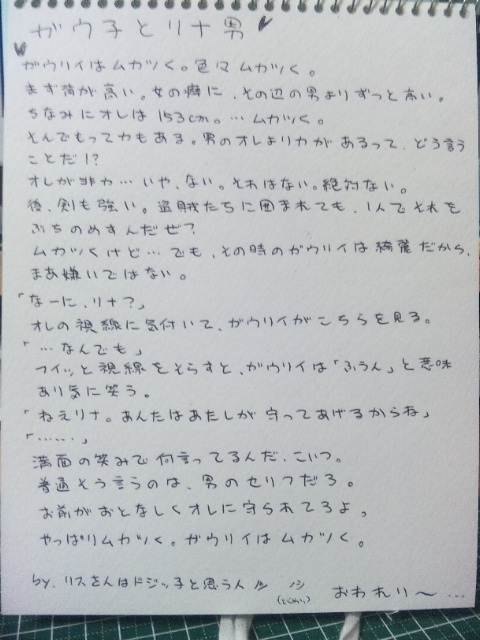 ガウ子とリナ男
ガウリイはムカツく。色々ムカツく。
まず背が高い。女の癖に、その辺の男よりずっと高い。
ちなみにオレは153cm。…ムカツく。
そんでもって力もある。男のオレより力があるって、どう言う
ことだ!?
オレが非力…いや、ない。それはない。絶対ない。
後、剣も強い。盗賊たちに囲まれても、1人でそれを
ぶちのめすんだぜ?
ムカツくけど…でも、その時のガウリイは綺麗だから、
まあ嫌いではない。
「なーに、リナ?」
オレの視線に気付いて、ガウリイがこちらを見る。
「…なんでも」
フイッと視線をそらすと、ガウリイは「ふうん」と意味
あり気に笑う。
「ねえリナ。あんたはあたしが守ってあげるからね」
「……」
満面の笑みで何言ってるんだ、こいつ。
普通そう言うのは、男のセリフだろ。
お前がおとなしくオレに守られてろよ。
やっぱりムカツく。ガウリイはムカツく。
by. リスさんはドジッ子と思う人
おわれり〜…